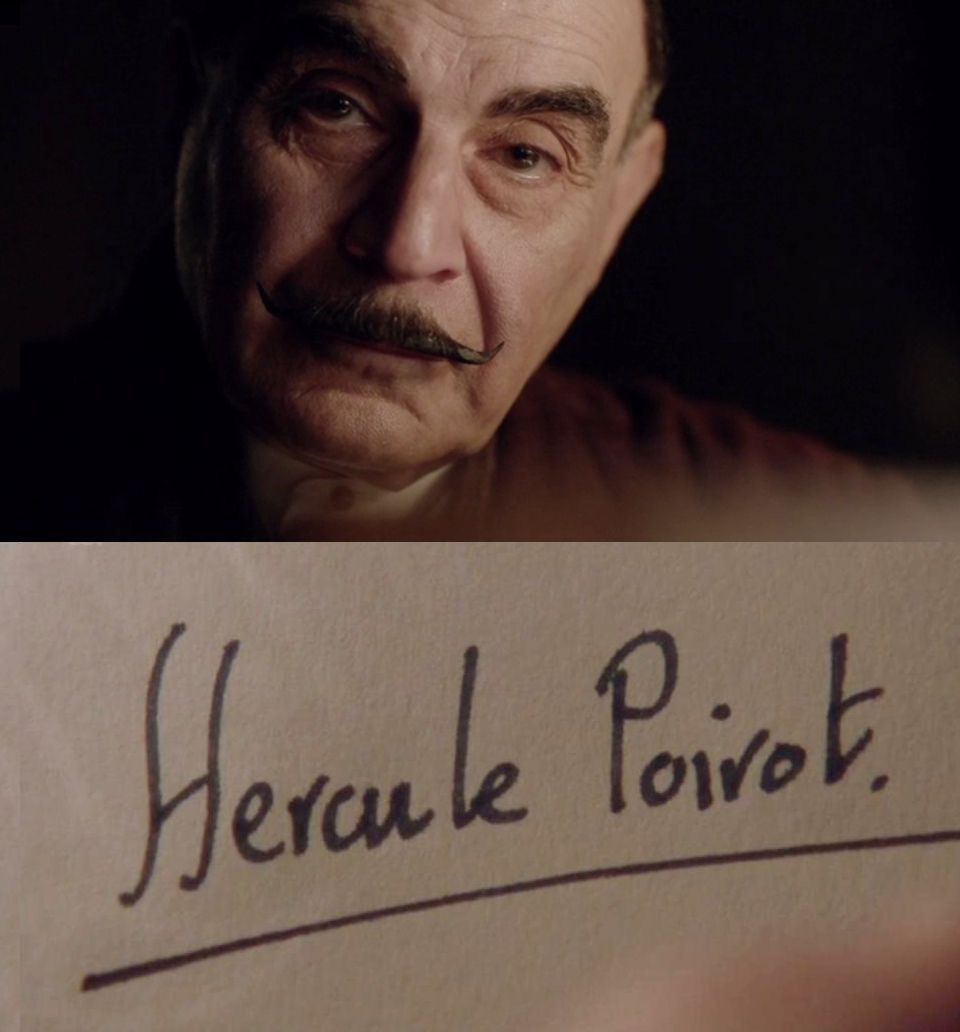 Hercule Poirot.